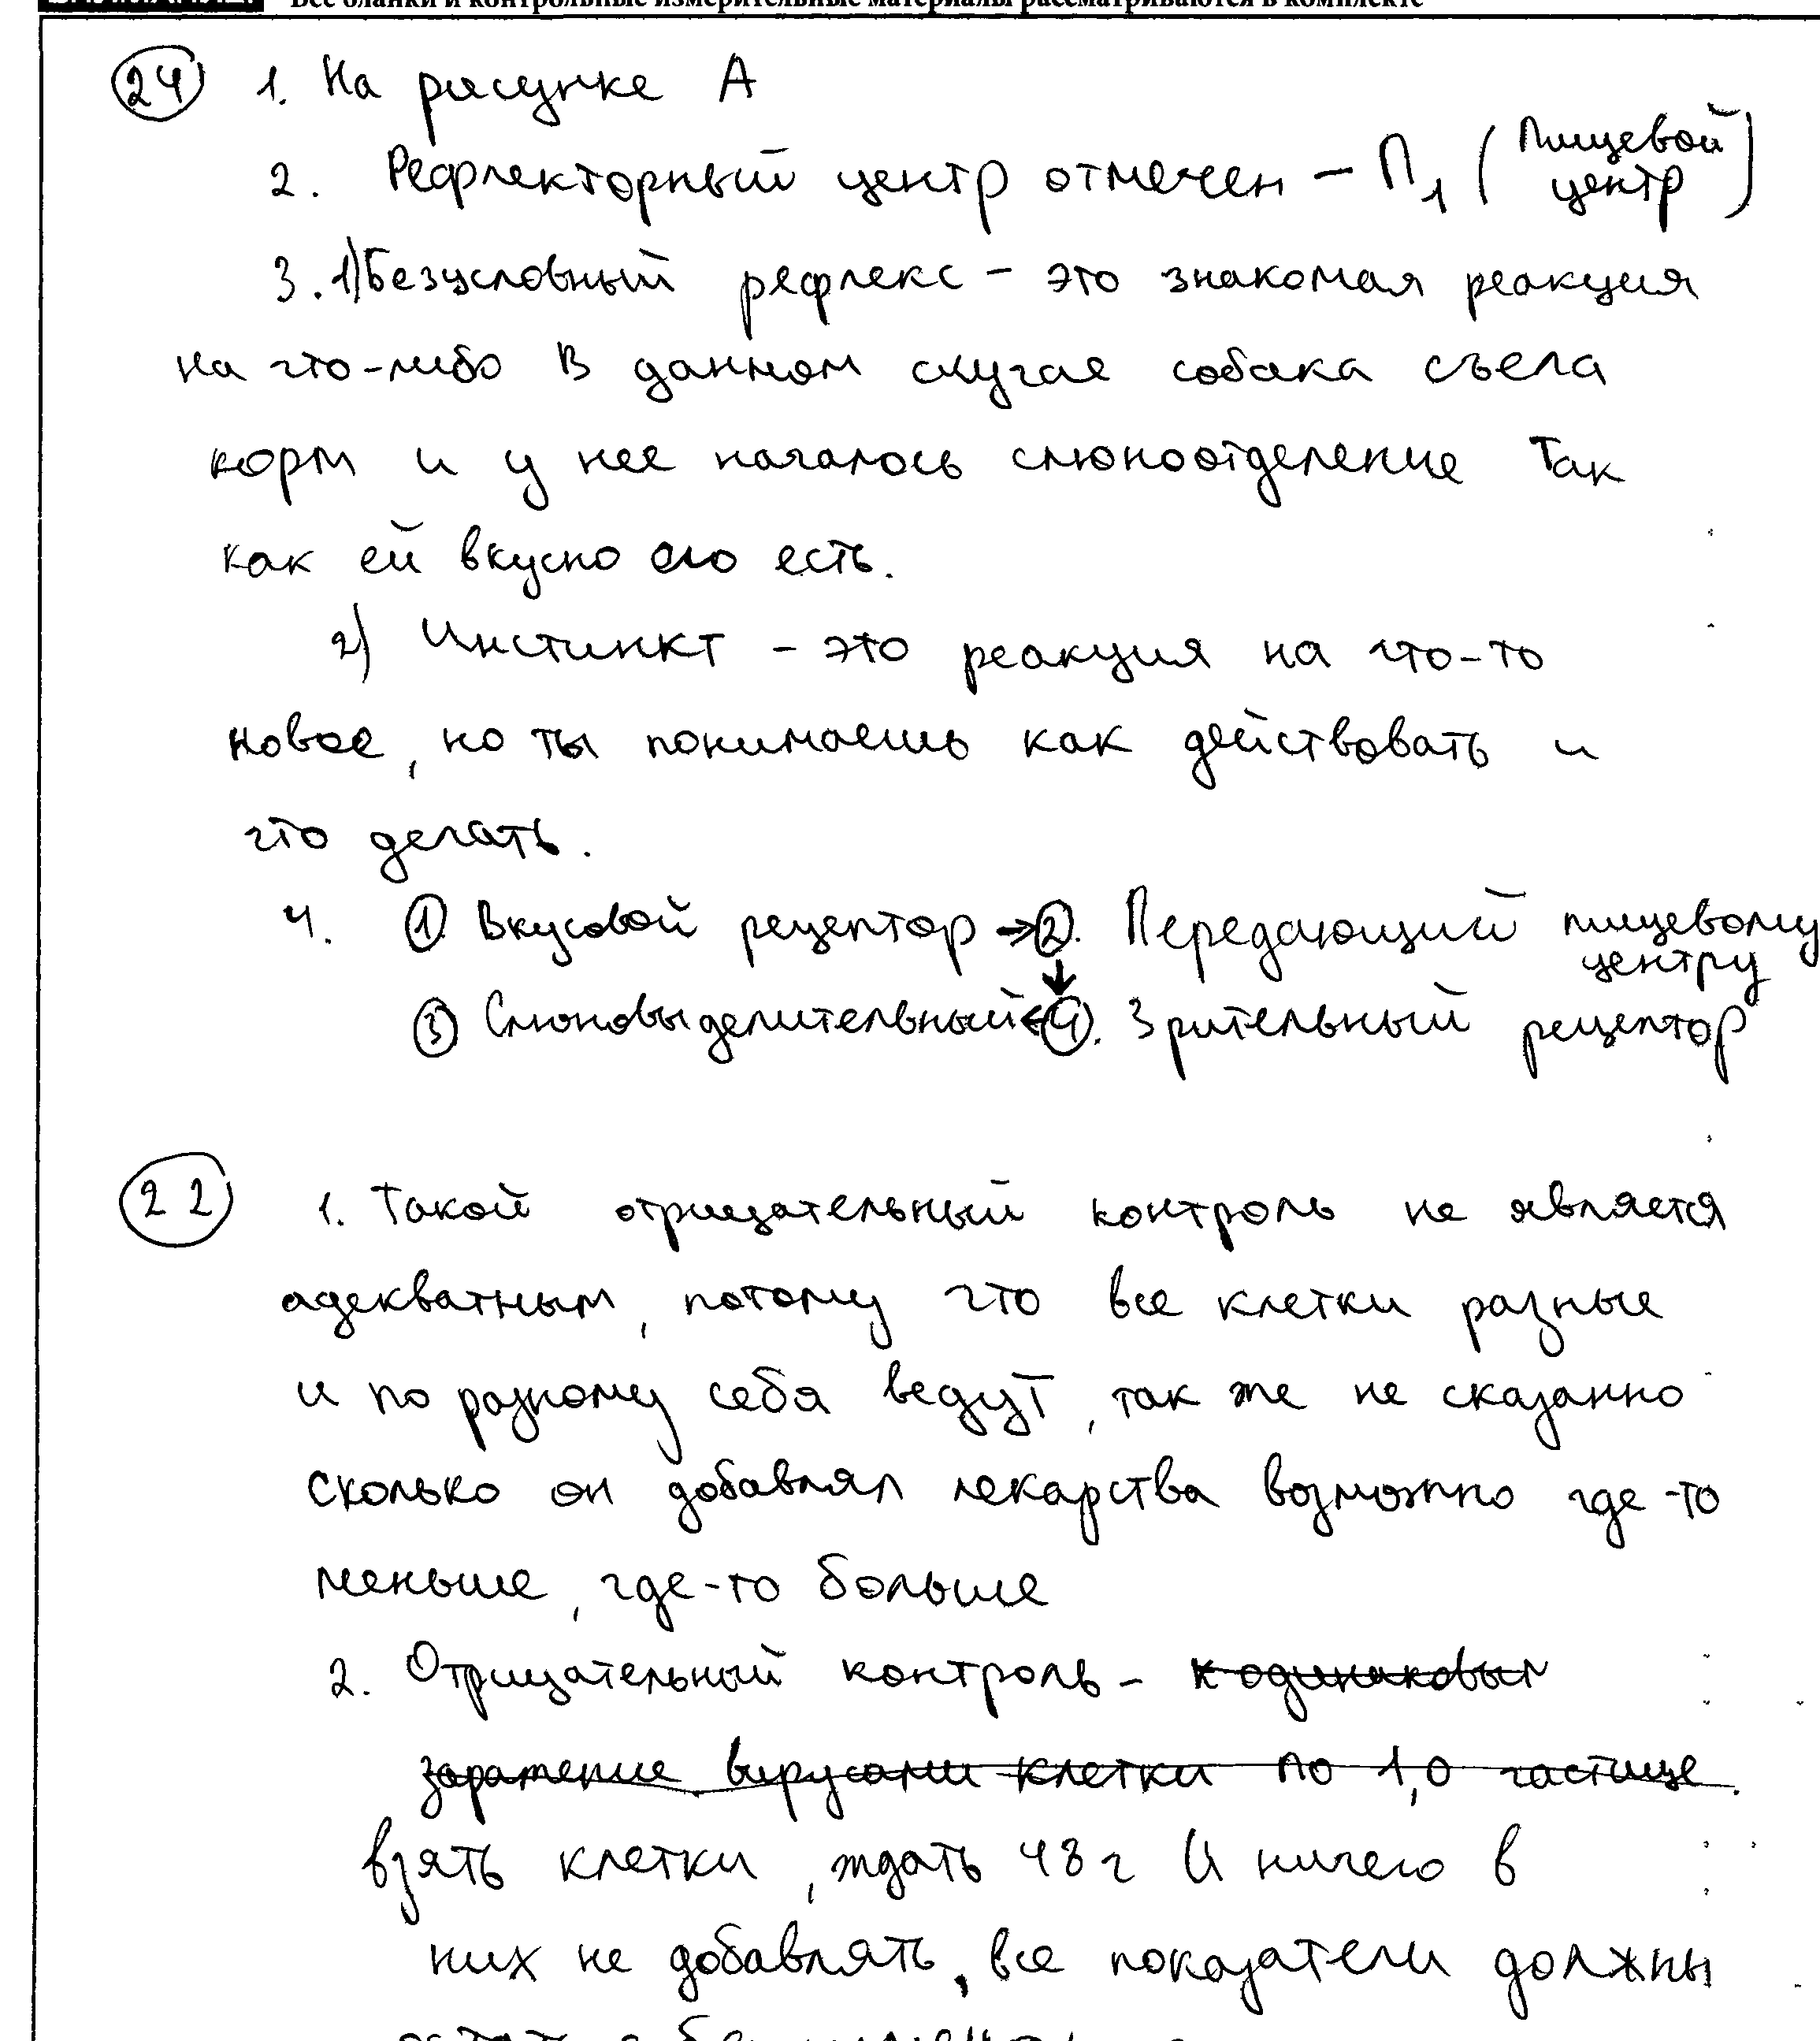 Все бланки и контрольные измерительные материалы рассматриваются в комплекте
24 1. На рисунке А
2. Рефлекторный центр отмечен – П1 (Пищевой центр)
3. 1) Безусловный рефлекс – это знакомая реакция
на что-либо В данном случае собака съела
корм и у нее началось слюноотделение Так
как ей вкусно его есть.
2) Инстинкт – это реакция на что-то
новое, но ты понимаешь как действовать и
что делать.
4. ① Вкусовой рецептор → ②. Передающий пищевому центру
↓
③ Слюновыделительный ← ④. Зрительный рецептор
22 1. Такой отрицательный контроль не является
адекватным, потому что все клетки разные
и по разному себя ведут, так же не сказанно
сколько он добавлял лекарства возможно где-то
меньше, где-то больше
2. Отрицательный контроль – к одинаковым
заражение вирусами клетки по 1,0 частице.
взять клетки, ждать 48 ч И ничего в
них не добавлять, все показатели должны